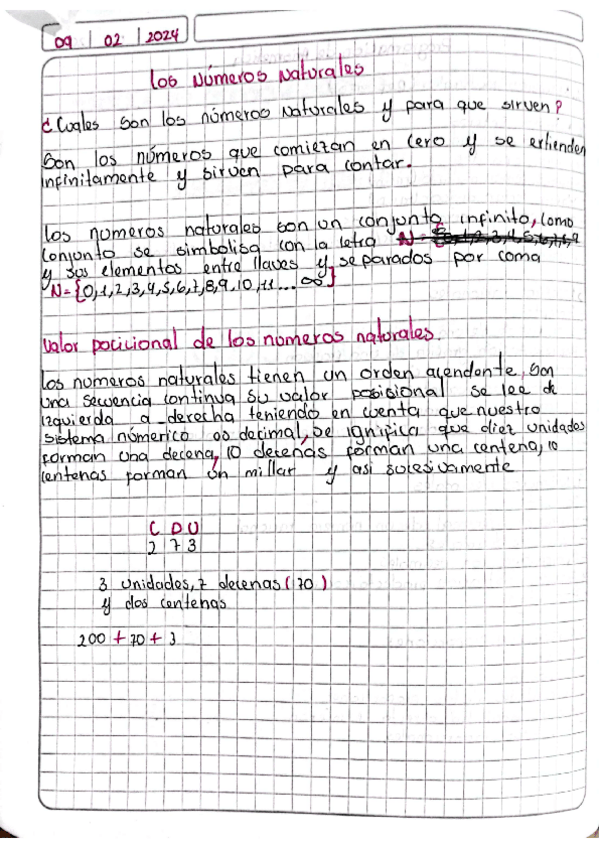 09 | 02 | 2024
Los Números Naturales
¿Cuales son los números Naturales y para que sirven?
Son los números que comiezan en Cero y se extienden
infinitamente y sirven para contar.
Los numeros naturales son un conjunto infinito, como
conjunto se simbolisa con la letra
y sus elementos entre llaves y separados por coma
N={0,1,2,3,4,5,6,7,8,9,10,11...∞}
Valor pocicional de los numeros naturales.
Los numeros naturales tienen un orden acendente, son
una secuencia continua su valor posisional se lee de
izquierda a derecha teniendo en cuenta que nuestro
sistema númerico es decimal, se ignifica que diez unidades
forman una decena, 10 decenas forman una centena, 10
centenas forman un millar y asi sucesivamente
C D U
2 7 3
3 unidades, 7 decenas (70)
y dos centenas
200 + 70 + 3